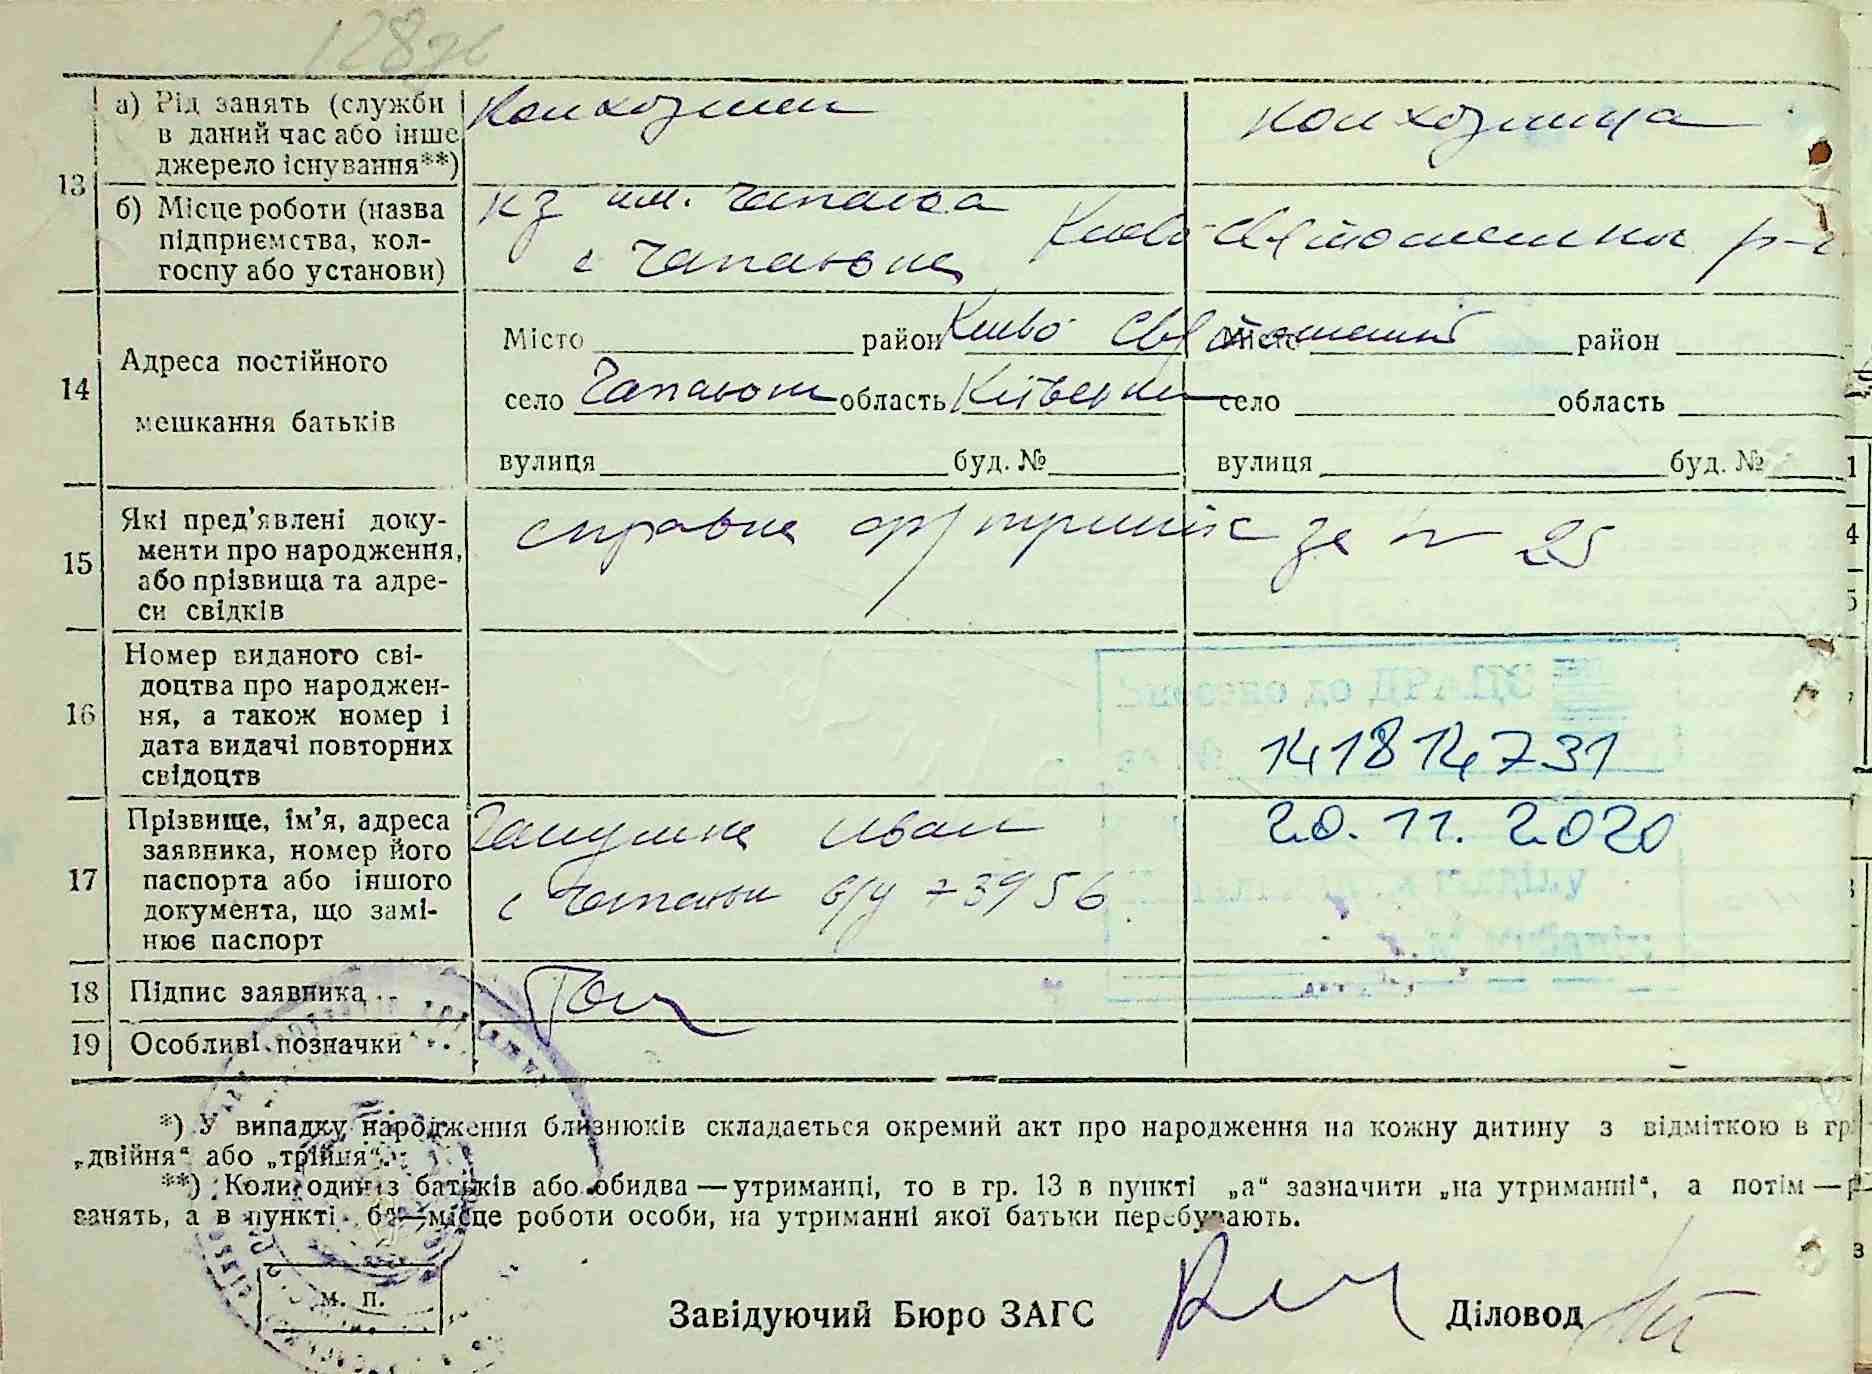 128зв
13 а) Рід занять (служби в даний час або інше джерело існування**)
Колхозник
колхозница
б) Місце роботи (назва підприємства, колгоспу або установи)
кз им. Чапаєва
с Чапаювка Києво-Святошинськ р-н
14 Адреса постійного мешкання батьків
Місто район Києво Святошинський
село Чапаювк область Київськ
вулиця буд. №
Місто район
село область
вулиця буд. №
15 Які пред’явлені документи про народження, або прізвища та адреси свідків
справка за № 25
16 Номер виданого свідоцтва про народження, а також номер і дата видачі повторних свідоцтв
141814731
20.11.2020
17 Прізвище, ім’я, адреса заявника, номер його паспорта або іншого документа, що замінює паспорт
Иван
с Чапаювк 73956
18 Підпис заявника
19 Особливі позначки
*) У випадку народження близнюків складається окремий акт про народження на кожну дитину з відміткою в гр.
„двійня“ або „трійня“.
**) Коли один з батьків або обидва — утриманці, то в гр. 13 в пункті „а“ зазначити „на утриманні“, а потім —
занять, а в пункті б — місце роботи особи, на утриманні якої батьки перебувають.
М. П.
Завідуючий Бюро ЗАГС
Діловод